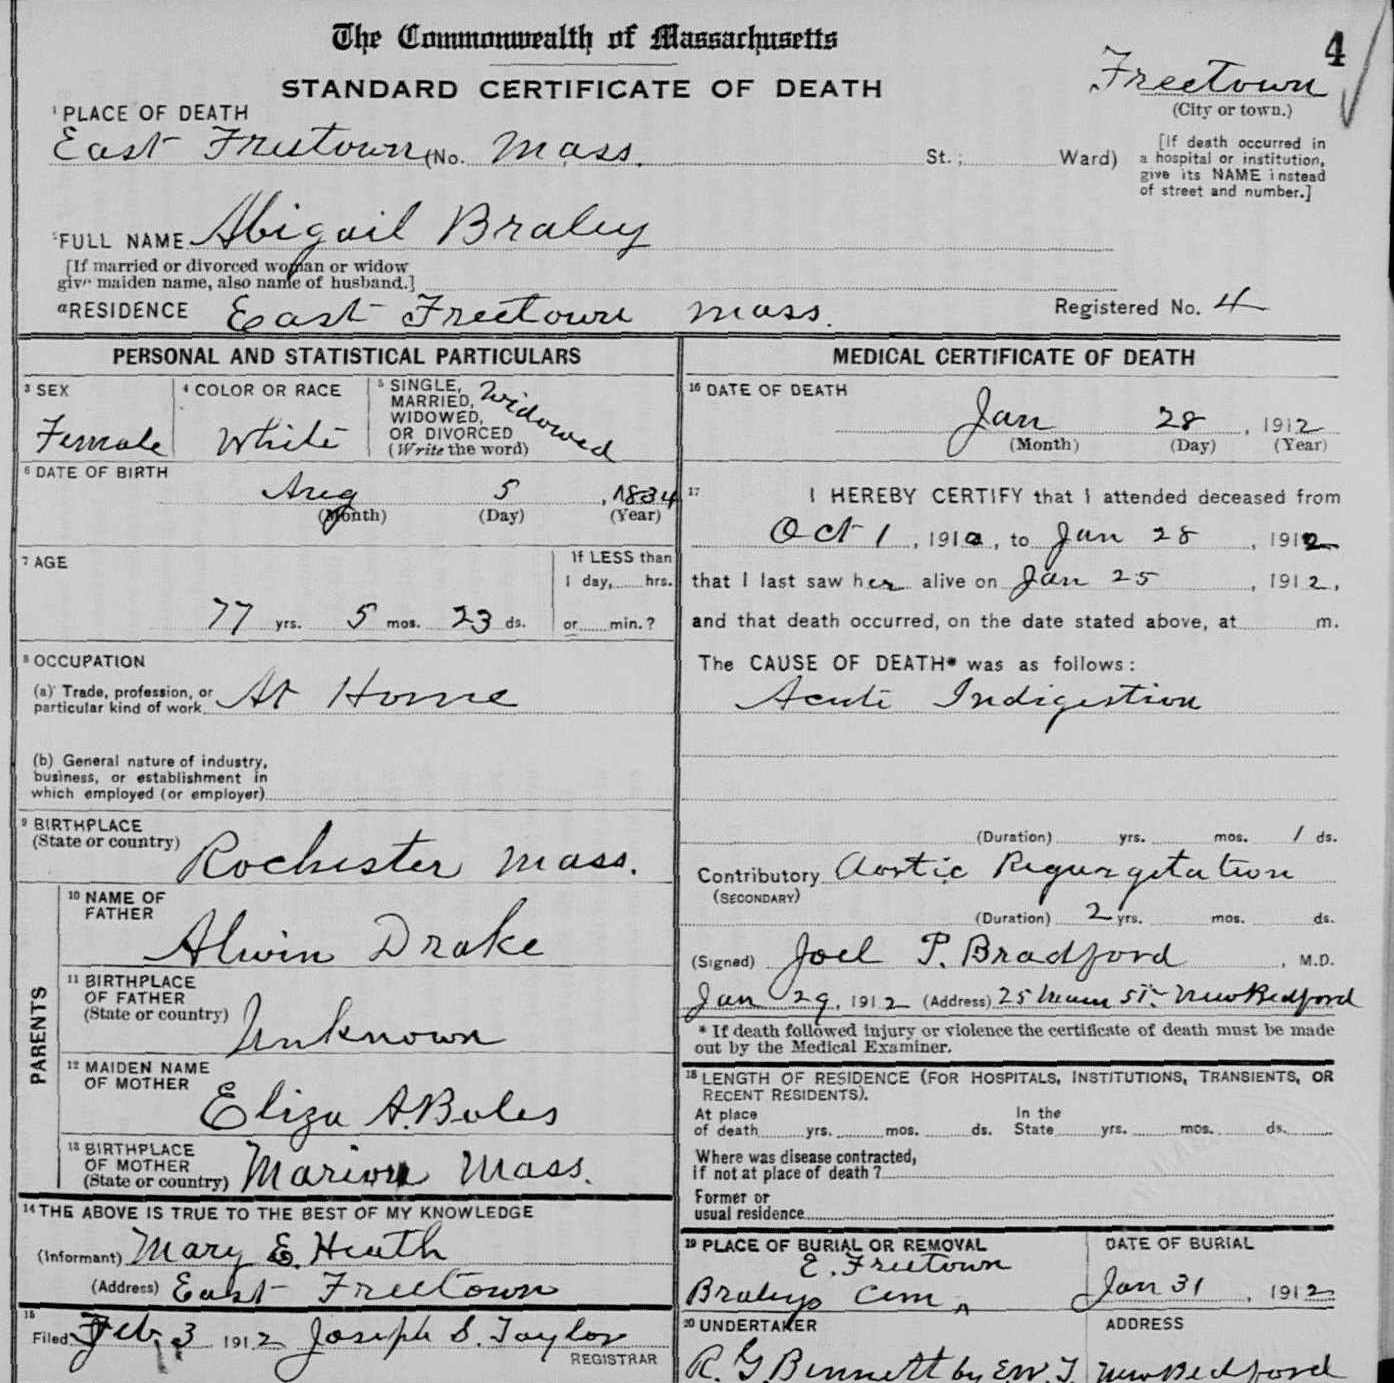 The Commonwealth of Massachusetts
4
STANDARD CERTIFICATE OF DEATH
Freetown
(City or town.)
1 PLACE OF DEATH
East Freetown (No. Mass. St.; Ward)
[If death occurred in
a hospital or institution,
give its NAME instead
of street and number.]
2 FULL NAME Abigail Braley
[If married or divorced woman or widow
give maiden name, also name of husband.]
a RESIDENCE East Freetown Mass.
Registered No. 4
PERSONAL AND STATISTICAL PARTICULARS
3 SEX
Female
4 COLOR OR RACE
White
5 SINGLE,
MARRIED,
WIDOWED,
OR DIVORCED
(Write the word)
Widowed
6 DATE OF BIRTH
Aug 5, 1834
(Month) (Day) (Year)
7 AGE
77 yrs. 5 mos. 23 ds.
If LESS than
1 day, hrs.
or min.?
8 OCCUPATION
(a) Trade, profession, or
particular kind of work At Home
(b) General nature of industry,
business, or establishment in
which employed (or employer)
9 BIRTHPLACE
(State or country) Rochester Mass.
PARENTS
10 NAME OF
FATHER
Alwin Drake
11 BIRTHPLACE
OF FATHER
(State or country) Unknown
12 MAIDEN NAME
OF MOTHER
Eliza A. Boles
13 BIRTHPLACE
OF MOTHER
(State or country) Marion Mass.
14 THE ABOVE IS TRUE TO THE BEST OF MY KNOWLEDGE
(Informant) Mary E. Heath
(Address) East Freetown
15
Filed Feb 3 1912 Joseph S. Taylor
REGISTRAR
MEDICAL CERTIFICATE OF DEATH
16 DATE OF DEATH
Jan 28, 1912
(Month) (Day) (Year)
17 I HEREBY CERTIFY that I attended deceased from
Oct 1, 1910, to Jan 28, 1912
that I last saw her alive on Jan 25, 1912,
and that death occurred, on the date stated above, at m.
The CAUSE OF DEATH* was as follows:
Acute Indigestion
(Duration) yrs. mos. 1 ds.
Contributory Aortic Regurgitation
(SECONDARY)
(Duration) 2 yrs. mos. ds.
(Signed) Joel P. Bradford, M.D.
Jan 29, 1912 (Address) 25 St. New Bedford
* If death followed injury or violence the certificate of death must be made
out by the Medical Examiner.
18 LENGTH OF RESIDENCE (FOR HOSPITALS, INSTITUTIONS, TRANSIENTS, OR
RECENT RESIDENTS).
At place
of death yrs. mos. ds.
In the
State yrs. mos. ds.
Where was disease contracted,
if not at place of death?
Former or
usual residence
19 PLACE OF BURIAL OR REMOVAL
E. Freetown
Braleys Cem
DATE OF BURIAL
Jan 31, 1912
20 UNDERTAKER
R. G Bennett by E.W.T.
ADDRESS
New Bedford